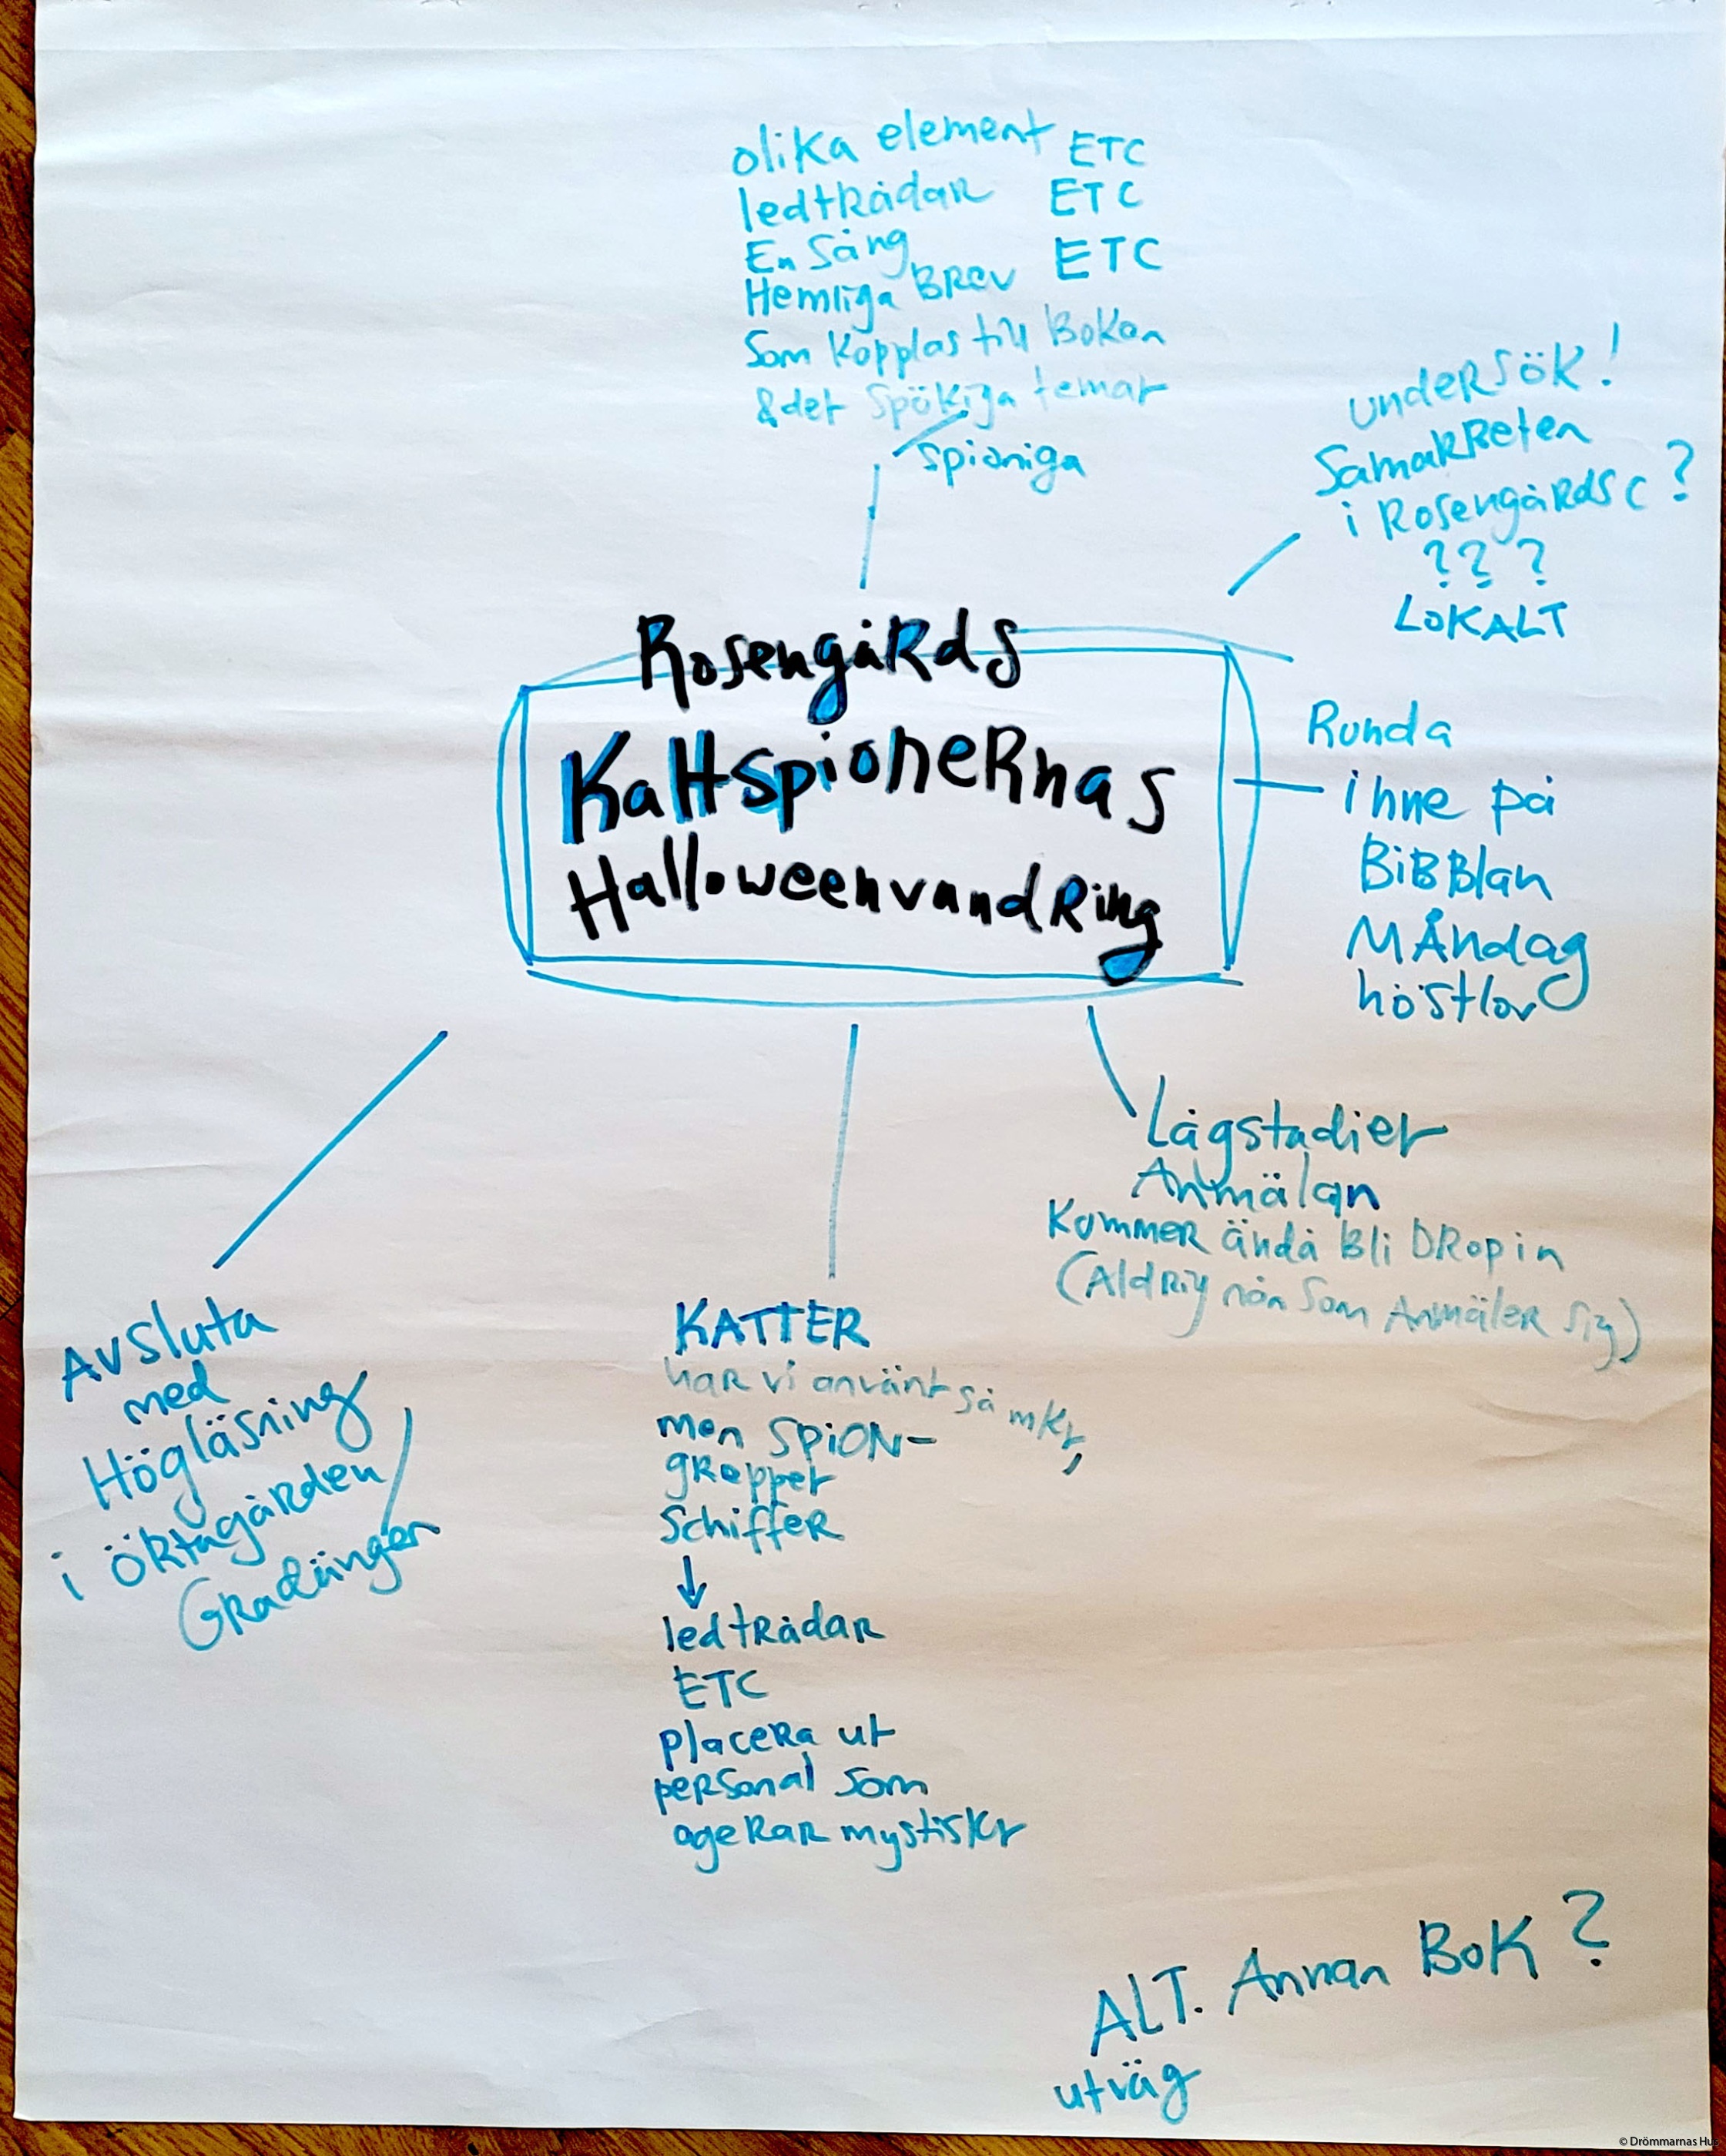 olika element ETC
ledtrådar ETC
En Sång ETC
Hemliga BREV
Som Kopplas till Boken
& det Spökiga temat
spioniga
undersök!
Samarbeten
i Rosengårds C?
? ? ?
LOKALT
Rosengårds
Kattspionernas
Halloweenvandring
Runda
inne på
BiBBlan
MÅNdag
höstlov
Lågstadiet
Anmälan
Kommer ändå bli DRopin
(Aldrig nån som Anmäler sig)
Avsluta
med
Högläsning
i Örtagården/
Gradänger
KATTER
har vi använt så mkt,
men SPION-
greppet
Schiffer
↓
ledtrådar
ETC
placera ut
personal som
agerar mystiskt
ALT. Annan BOK?
utväg
© Drömmarnas Hus